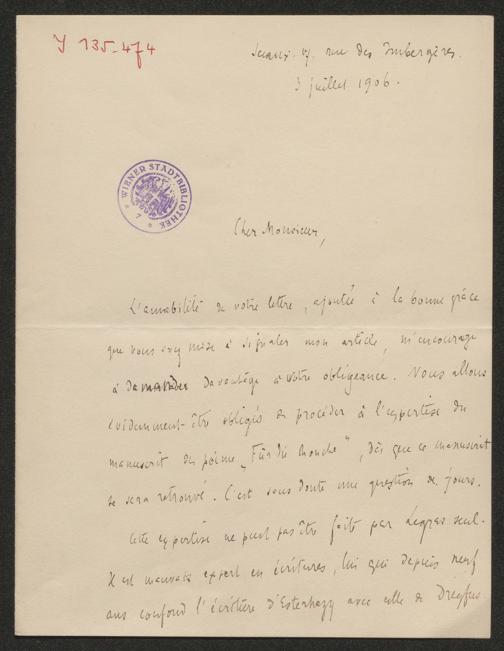 J 135.474
Sceaux. 17, rue des Imbergères.
3 juillet 1906.
WIENER STADTBIBLIOTHEK
Cher Monsieur,
L'amabilité de votre lettre, ajoutée à la bonne grâce
que vous avez mise à signaler mon article, m'encourage
à demander davantage à votre obligeance. Nous allons
évidemment être obligés de procéder à l'expertise du
manuscrit du poème „Für die Mouche", dès que ce manuscrit
se sera retrouvé. C'est sans doute une question de jours.
Cette expertise ne peut pas être faite par Legras seul.
Il est mauvais expert en écritures, lui qui depuis neuf
ans confond l'écriture d'Esterhazy avec celle de Dreyfus.